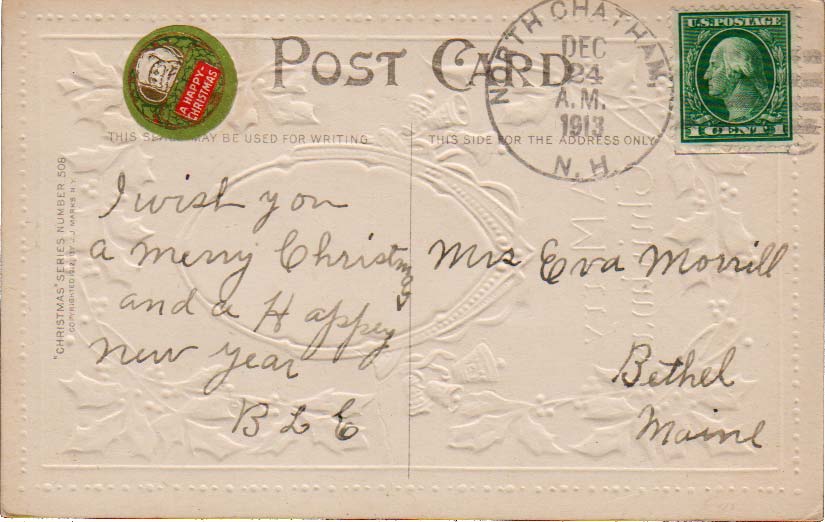 POST CARD
A HAPPY-
CHRISTMAS
NORTH CHATHAM,
DEC
24
A.M.
1913
N. H.
U.S. POSTAGE
1 CENT 1
THIS SPACE MAY BE USED FOR WRITING
THIS SIDE FOR THE ADDRESS ONLY
"CHRISTMAS" SERIES NUMBER 508
COPYRIGHTED 1912, BY J. J. MARKS N.Y.
I wish you
a merry Christmas
and a Happey
new year
B L E
Mrs Eva Morrill
Bethel
Maine